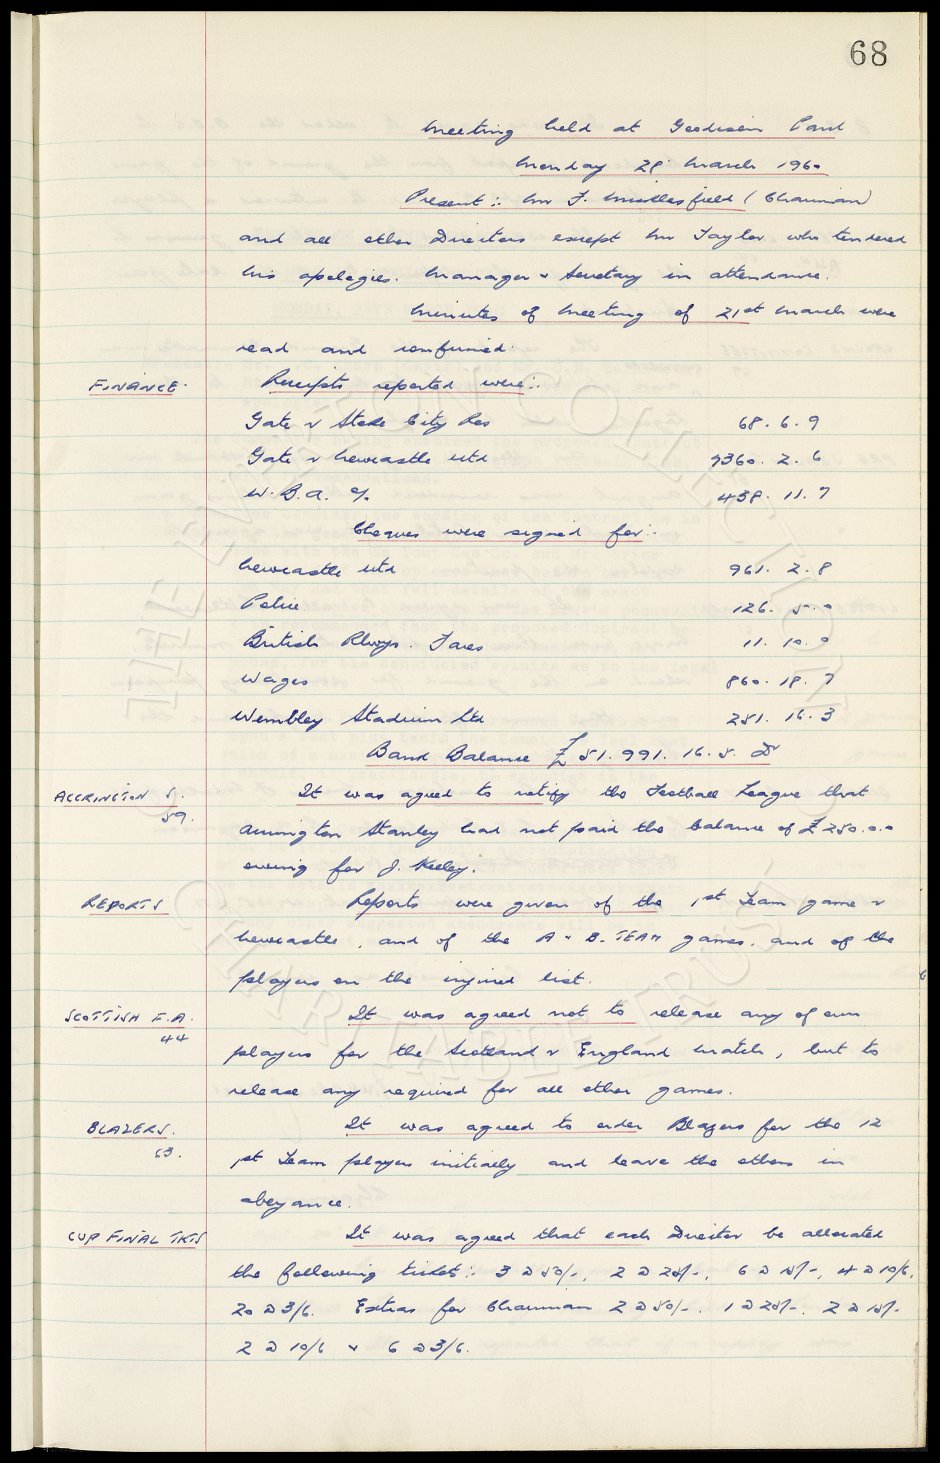 68
Meeting held at Goodison Park
Monday 28 March 1960
Present :. Mr F. Micklesfield (Chairman)
and all other Directors except Mr Taylor who tendered
his apologies. Manager & Secretary in attendance.
Minutes of Meeting of 21st March were
read and confirmed.
FINANCE. Receipts reported were :.
Gate v Stoke City Res 68. 6. 9
Gate v Newcastle Utd 9360. 2. 6
W.B.A. % 438. 11. 7
Cheques were signed for :.
Newcastle Utd 961. 2. 8
Police 126. 5. 0
British Rlwys. Fares 11. 10. 0
Wages 860. 18. 7
Wembley Stadium Ltd 251. 16. 3
Bank Balance £51.991. 16. 5. Dr
ACCRINGTON S. It was agreed to notify the Football League that
59. Accrington Stanley had not paid the balance of £250.0.0
owing for J. Keeley.
REPORTS Reports were given of the 1st Team game v
Newcastle, and of the A & B. TEAM games, and of the
players on the injured list.
SCOTTISH F.A. It was agreed not to release any of our
44 players for the Scotland v England match, but to
release any required for all other games.
BLAZERS. It was agreed to order Blazers for the 12
63. 1st Team players initially and leave the others in
abeyance.
CUP FINAL TKTS It was agreed that each Director be allocated
the following tickets :. 3 @ 50/-, 2 @ 25/-, 6 @ 15/-, 4 @ 10/6,
20 @ 3/6. Extras for Chairman 2 @ 50/-. 1 @ 25/-. 2 @ 15/-
2 @ 10/6 & 6 @ 3/6.
THE EVERTON COLLECTION
CHARITABLE TRUST